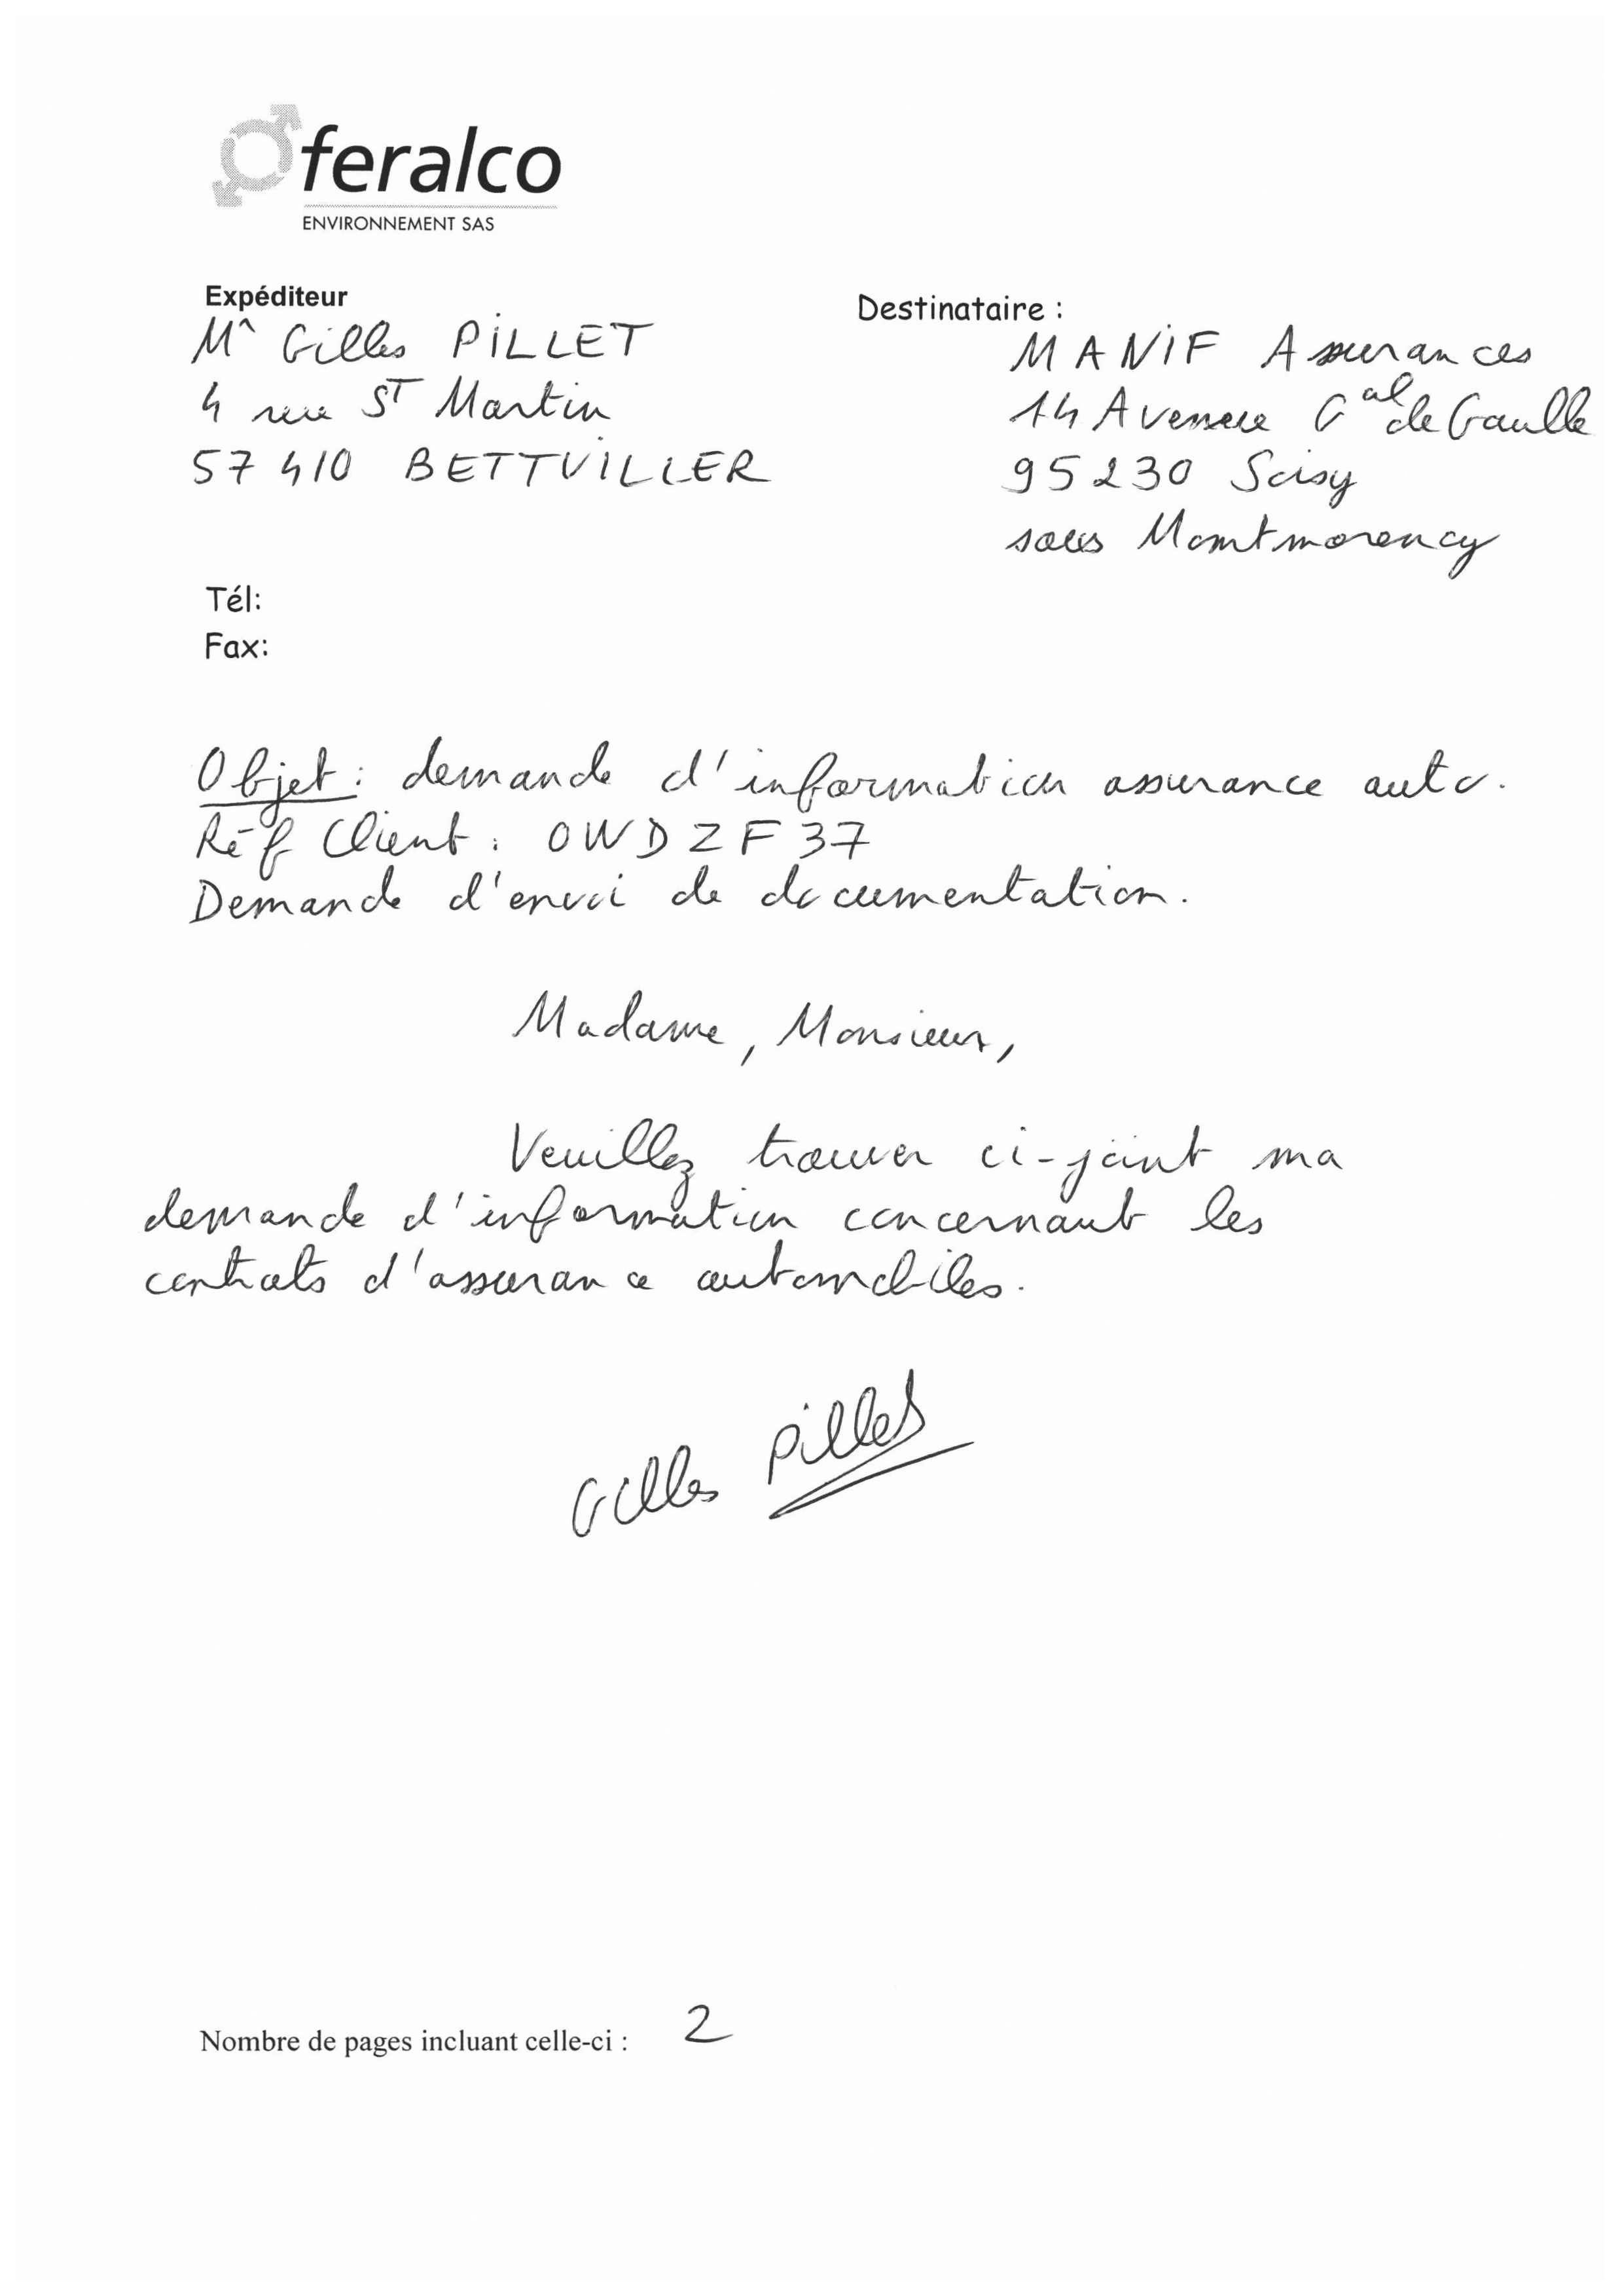 feralco
ENVIRONNEMENT SAS
Expéditeur
Mr Gilles PILLET
4 rue ST Martin
57410 BETTVILLER
Destinataire :
MANIF Assurances
14 Avenue Gal de Gaulle
95230 Soisy
sous Montmorency
Tél:
Fax:
Objet : demande d'information assurance auto.
Réf Client : OWDZF37
Demande d'envoi de documentation.
Madame, Monsieur,
Veuillez trouver ci-joint ma
demande d'information concernant les
contrats d'assurance automobiles.
Gilles Pillet
Nombre de pages incluant celle-ci : 2